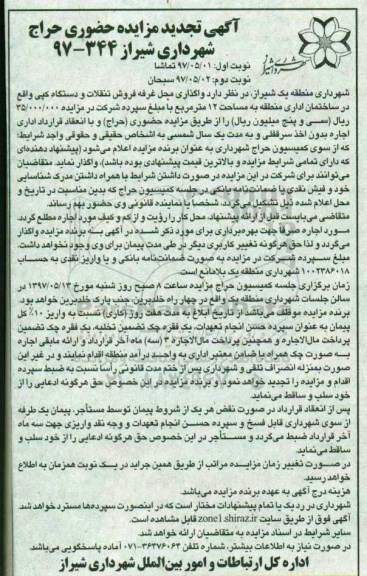 آگهی تجدید مزایده حضوری حراج
شهرداری شیراز ۳۴۴-۹۷
نوبت اول: ۹۷/۰۵/۰۱ تماشا
نوبت دوم: ۹۷/۰۵/۰۲ سبحان
شهرداری منطقه یک شیراز، در نظر دارد واگذاری محل غرفه فروش تنقلات و دستگاه کپی واقع
در ساختمان اداری منطقه به مساحت ۱۲ مترمربع با مبلغ سپرده شرکت در مزایده ۳۵/۰۰۰/۰۰۰
ریال (سی و پنج میلیون ریال) را از طریق مزایده حضوری (حراج) و با انعقاد قرارداد اداری
اجاره بدون اخذ سرقفلی و به مدت یک سال شمسی به اشخاص حقیقی و حقوقی واجد شرایط؛
که از سوی کمیسیون حراج شهرداری به عنوان برنده مزایده اعلام می‌شود (پیشنهاد دهنده‌ای
که دارای تمامی شرایط مزایده و بالاترین قیمت پیشنهادی بوده باشد)، واگذار نماید. متقاضیان
می‌توانند برای شرکت در این مزایده در صورت داشتن شرایط با همراه داشتن مدرک شناسایی
خود و فیش نقدی یا ضمانت‌نامه بانکی در جلسه کمیسیون حراج که بدین مناسبت در تاریخ و
محل اعلام شده ذیل تشکیل می‌گردد، شخصاً یا نماینده قانونی وی حضور بهم رساند.
متقاضی می‌بایست قبل از ارائه پیشنهاد، محل کار را رؤیت و از کم و کیف مورد اجاره مطلع گردد.
مورد اجاره صرفاً جهت بهره‌برداری برای مورد ذکر شده در آگهی به برنده مزایده واگذار
می‌گردد و لذا حق هرگونه تغییر کاربری دیگر در طی مدت پیمان برای وی وجود نخواهد داشت.
مبلغ سپرده شرکت در مزایده به صورت ضمانت‌نامه بانکی و یا واریز نقدی به حساب
۱۰۰۲۳۸۶۰۱۸ شهرداری منطقه یک بلامانع است.
زمان برگزاری جلسه کمیسیون حراج مزایده ساعت ۸ صبح روز شنبه مورخ ۱۳۹۷/۰۵/۱۳ در
سالن جلسات شهرداری منطقه یک واقع در چهار راه خلدبرین جنب پارک خلدبرین خواهد بود.
برنده مزایده موظف می‌باشد از تاریخ ابلاغ به مدت هفت روز (کاری) نسبت به واریز ۱۰٪ کل
پیمان به عنوان سپرده حسن انجام تعهدات، یک فقره چک تضمین تخلیه، یک فقره چک تضمین
پرداخت مال‌الاجاره و همچنین پرداخت مال‌الاجاره ۳ (سه) ماه آخر قرارداد و ارائه مابقی اجاره
به صورت چک همراه با ضامن معتبر اداری به واحد درآمد منطقه اقدام نمایند و در غیر این
صورت بمنزله انصراف تلقی و شهرداری پس از ختم مدت قانونی رأساً نسبت به ضبط سپرده
اقدام و مزایده را تجدید خواهد نمود و برنده مزایده در این خصوص حق هرگونه ادعایی را از
خود سلب و ساقط می‌نماید.
پس از انعقاد قرارداد در صورت نقض هر یک از شروط پیمان توسط مستأجر، پیمان یک طرفه
از سوی شهرداری قابل فسخ و سپرده حسن انجام تعهدات و وجه نقد واریزی جهت سه ماه
آخر قرارداد ضبط می‌گردد و مستأجر در این خصوص حق هرگونه ادعایی را از خود سلب و
ساقط می‌نماید.
در صورت تغییر زمان مزایده مراتب از طریق همین جراید در یک نوبت همزمان به اطلاع
خواهد رسید.
هزینه درج آگهی به عهده برنده مزایده می‌باشد.
شهرداری در رد یک یا تمام پیشنهادات مختار است که در اینصورت سپرده‌ها مسترد خواهد شد.
آگهی فوق از طریق سایت zone1.shiraz.ir قابل مشاهده است.
سایر شرایط در اسناد مزایده به متقاضیان ارائه خواهد شد.
در صورت نیاز به اطلاعات بیشتر، شماره تلفن ۳۶۴۷۶۰۶۴-۰۷۱ آماده پاسخگویی می‌باشد.
اداره کل ارتباطات و امور بین‌الملل شهرداری شیراز